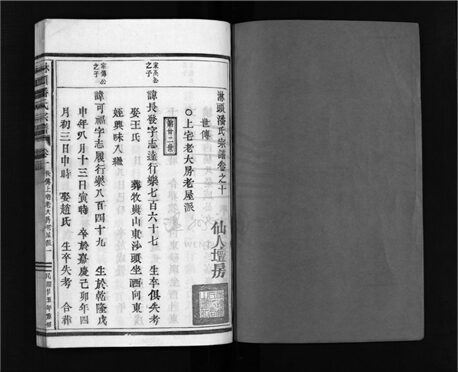 淋頭潘氏宗譜卷之十
仙人壇房
世傳
○上宅老大房老屋派
第廿二世
之子
諱長發字志達行樂七百六十七 生卒俱失考
娶王氏 葬牧與山東沙頭坐酉向東
姪興味入繼
之子
諱可福字志履行樂八百四十九 生於乾隆戊
申年八月十三日寅時 卒於嘉慶己卯年四
月初三日申時 娶趙氏 生卒失考 合葬
潘氏宗譜
世傳上宅老大房老屋派一